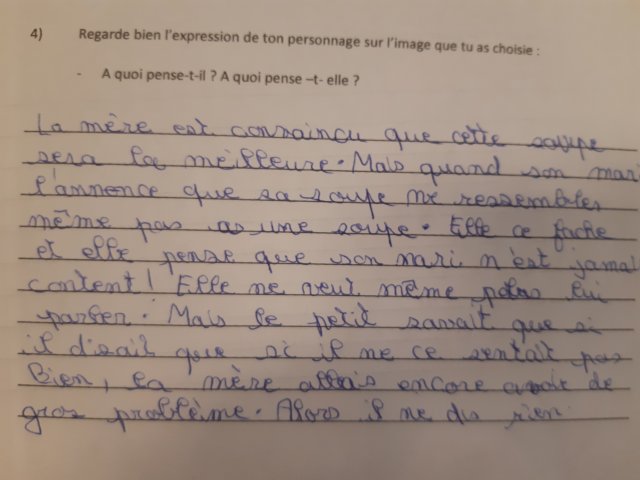 4) Regarde bien l'expression de ton personnage sur l'image que tu as choisie :
- A quoi pense-t-il ? A quoi pense –t- elle ?
La mère est convaincu que cette soupe
sera la meilleure. Mais quand son mari
l'annence que sa soupe ne ressembles
même pas as une soupe. Elle ce fache
et elle pense que son mari n'est jamai
content ! Elle ne veut même plus lui
parler. Mais le petit savait que si
il disait que si il ne ce sentait pas
Bien, la mère allais encore avoir de
gros problème. Alors il ne dis rien.